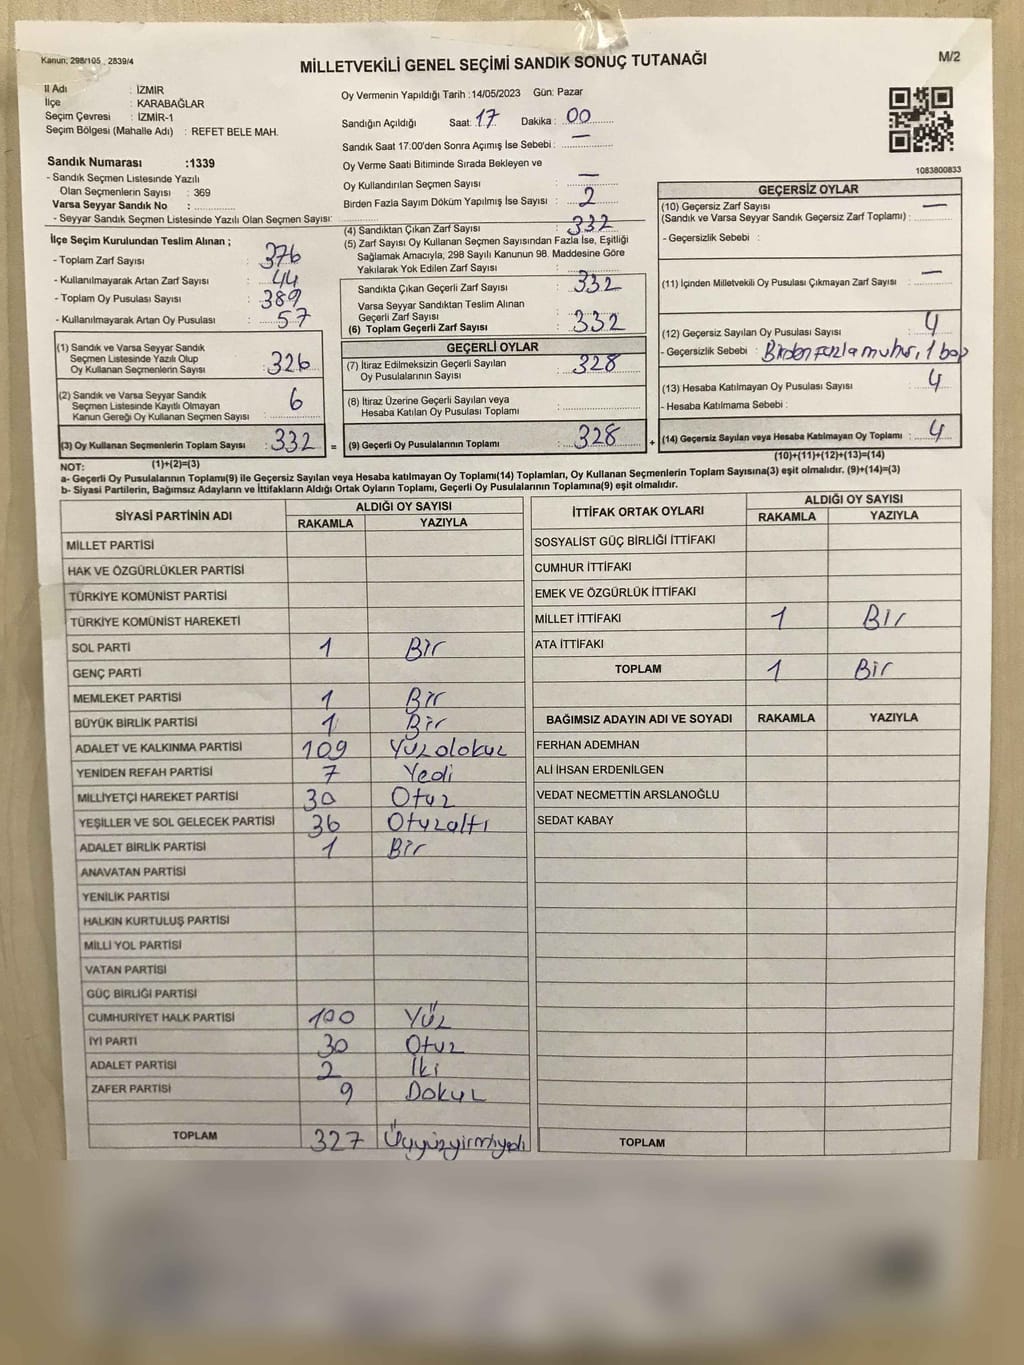 Kanun: 298/105 , 2839/4
MİLLETVEKİLİ GENEL SEÇİMİ SANDIK SONUÇ TUTANAĞI
M/2
İl Adı : İZMİR
İlçe : KARABAĞLAR
Seçim Çevresi : İZMİR-1
Seçim Bölgesi (Mahalle Adı) : REFET BELE MAH.
Sandık Numarası :1339
- Sandık Seçmen Listesinde Yazılı
Olan Seçmenlerin Sayısı : 369
Varsa Seyyar Sandık No :
- Seyyar Sandık Seçmen Listesinde Yazılı Olan Seçmen Sayısı:
Oy Vermenin Yapıldığı Tarih :14/05/2023 Gün: Pazar
Sandığın Açıldığı Saat: 17 Dakika : 00
Sandık Saat 17:00'den Sonra Açımış İse Sebebi : —
Oy Verme Saati Bitiminde Sırada Bekleyen ve
Oy Kullandırılan Seçmen Sayısı : —
Birden Fazla Sayım Döküm Yapılmış İse Sayısı : 2
1083800833
İlçe Seçim Kurulundan Teslim Alınan ;
- Toplam Zarf Sayısı : 376
- Kullanılmayarak Artan Zarf Sayısı : 44
- Toplam Oy Pusulası Sayısı : 389
- Kullanılmayarak Artan Oy Pusulası : 57
(1) Sandık ve Varsa Seyyar Sandık
Seçmen Listesinde Yazılı Olup
Oy Kullanan Seçmenlerin Sayısı : 326
(2) Sandık ve Varsa Seyyar Sandık
Seçmen Listesinde Kayıtlı Olmayan
Kanun Gereği Oy Kullanan Seçmen Sayısı : 6
(3) Oy Kullanan Seçmenlerin Toplam Sayısı : 332 =
(4) Sandıktan Çıkan Zarf Sayısı : 332
(5) Zarf Sayısı Oy Kullanan Seçmen Sayısından Fazla İse, Eşitliği
Sağlamak Amacıyla, 298 Sayılı Kanunun 98. Maddesine Göre
Yakılarak Yok Edilen Zarf Sayısı :
Sandıkta Çıkan Geçerli Zarf Sayısı : 332
Varsa Seyyar Sandıktan Teslim Alınan
Geçerli Zarf Sayısı :
(6) Toplam Geçerli Zarf Sayısı : 332
GEÇERLİ OYLAR
(7) İtiraz Edilmeksizin Geçerli Sayılan
Oy Pusulalarının Sayısı : 328
(8) İtiraz Üzerine Geçerli Sayılan veya
Hesaba Katılan Oy Pusulası Toplamı :
(9) Geçerli Oy Pusulalarının Toplamı : 328 +
GEÇERSİZ OYLAR
(10) Geçersiz Zarf Sayısı —
(Sandık ve Varsa Seyyar Sandık Geçersiz Zarf Toplamı) :
- Geçersizlik Sebebi :
(11) İçinden Milletvekili Oy Pusulası Çıkmayan Zarf Sayısı : —
(12) Geçersiz Sayılan Oy Pusulası Sayısı : 4
- Geçersizlik Sebebi : Birden fazla muhur, 1 boş
(13) Hesaba Katılmayan Oy Pusulası Sayısı : 4
- Hesaba Katılmama Sebebi :
(14) Geçersiz Sayılan veya Hesaba Katılmayan Oy Toplamı : 4
NOT: (1)+(2)=(3)
(10)+(11)+(12)+(13)=(14)
a- Geçerli Oy Pusulalarının Toplamı(9) ile Geçersiz Sayılan veya Hesaba katılmayan Oy Toplamı(14) Toplamları, Oy Kullanan Seçmenlerin Toplam Sayısına(3) eşit olmalıdır. (9)+(14)=(3)
b- Siyasi Partilerin, Bağımsız Adayların ve İttifakların Aldığı Ortak Oyların Toplamı, Geçerli Oy Pusulalarının Toplamına(9) eşit olmalıdır.
SİYASİ PARTİNİN ADI
ALDIĞI OY SAYISI
RAKAMLA YAZIYLA
MİLLET PARTİSİ
HAK VE ÖZGÜRLÜKLER PARTİSİ
TÜRKİYE KOMÜNİST PARTİSİ
TÜRKİYE KOMÜNİST HAREKETİ
SOL PARTİ 1 Bir
GENÇ PARTİ
MEMLEKET PARTİSİ 1 Bir
BÜYÜK BİRLİK PARTİSİ 1 Bir
ADALET VE KALKINMA PARTİSİ 109 Yüzdokuz
YENİDEN REFAH PARTİSİ 7 Yedi
MİLLİYETÇİ HAREKET PARTİSİ 30 Otuz
YEŞİLLER VE SOL GELECEK PARTİSİ 36 Otuzaltı
ADALET BİRLİK PARTİSİ 1 Bir
ANAVATAN PARTİSİ
YENİLİK PARTİSİ
HALKIN KURTULUŞ PARTİSİ
MİLLİ YOL PARTİSİ
VATAN PARTİSİ
GÜÇ BİRLİĞİ PARTİSİ
CUMHURİYET HALK PARTİSİ 100 Yüz
İYİ PARTİ 30 Otuz
ADALET PARTİSİ 2 İki
ZAFER PARTİSİ 9 Dokuz
TOPLAM 327 Üçyüzyirmiyedi
İTTİFAK ORTAK OYLARI
ALDIĞI OY SAYISI
RAKAMLA YAZIYLA
SOSYALİST GÜÇ BİRLİĞİ İTTİFAKI
CUMHUR İTTİFAKI
EMEK VE ÖZGÜRLÜK İTTİFAKI
MİLLET İTTİFAKI 1 Bir
ATA İTTİFAKI
TOPLAM 1 Bir
BAĞIMSIZ ADAYIN ADI VE SOYADI RAKAMLA YAZIYLA
FERHAN ADEMHAN
ALİ İHSAN ERDENİLGEN
VEDAT NECMETTİN ARSLANOĞLU
SEDAT KABAY
TOPLAM